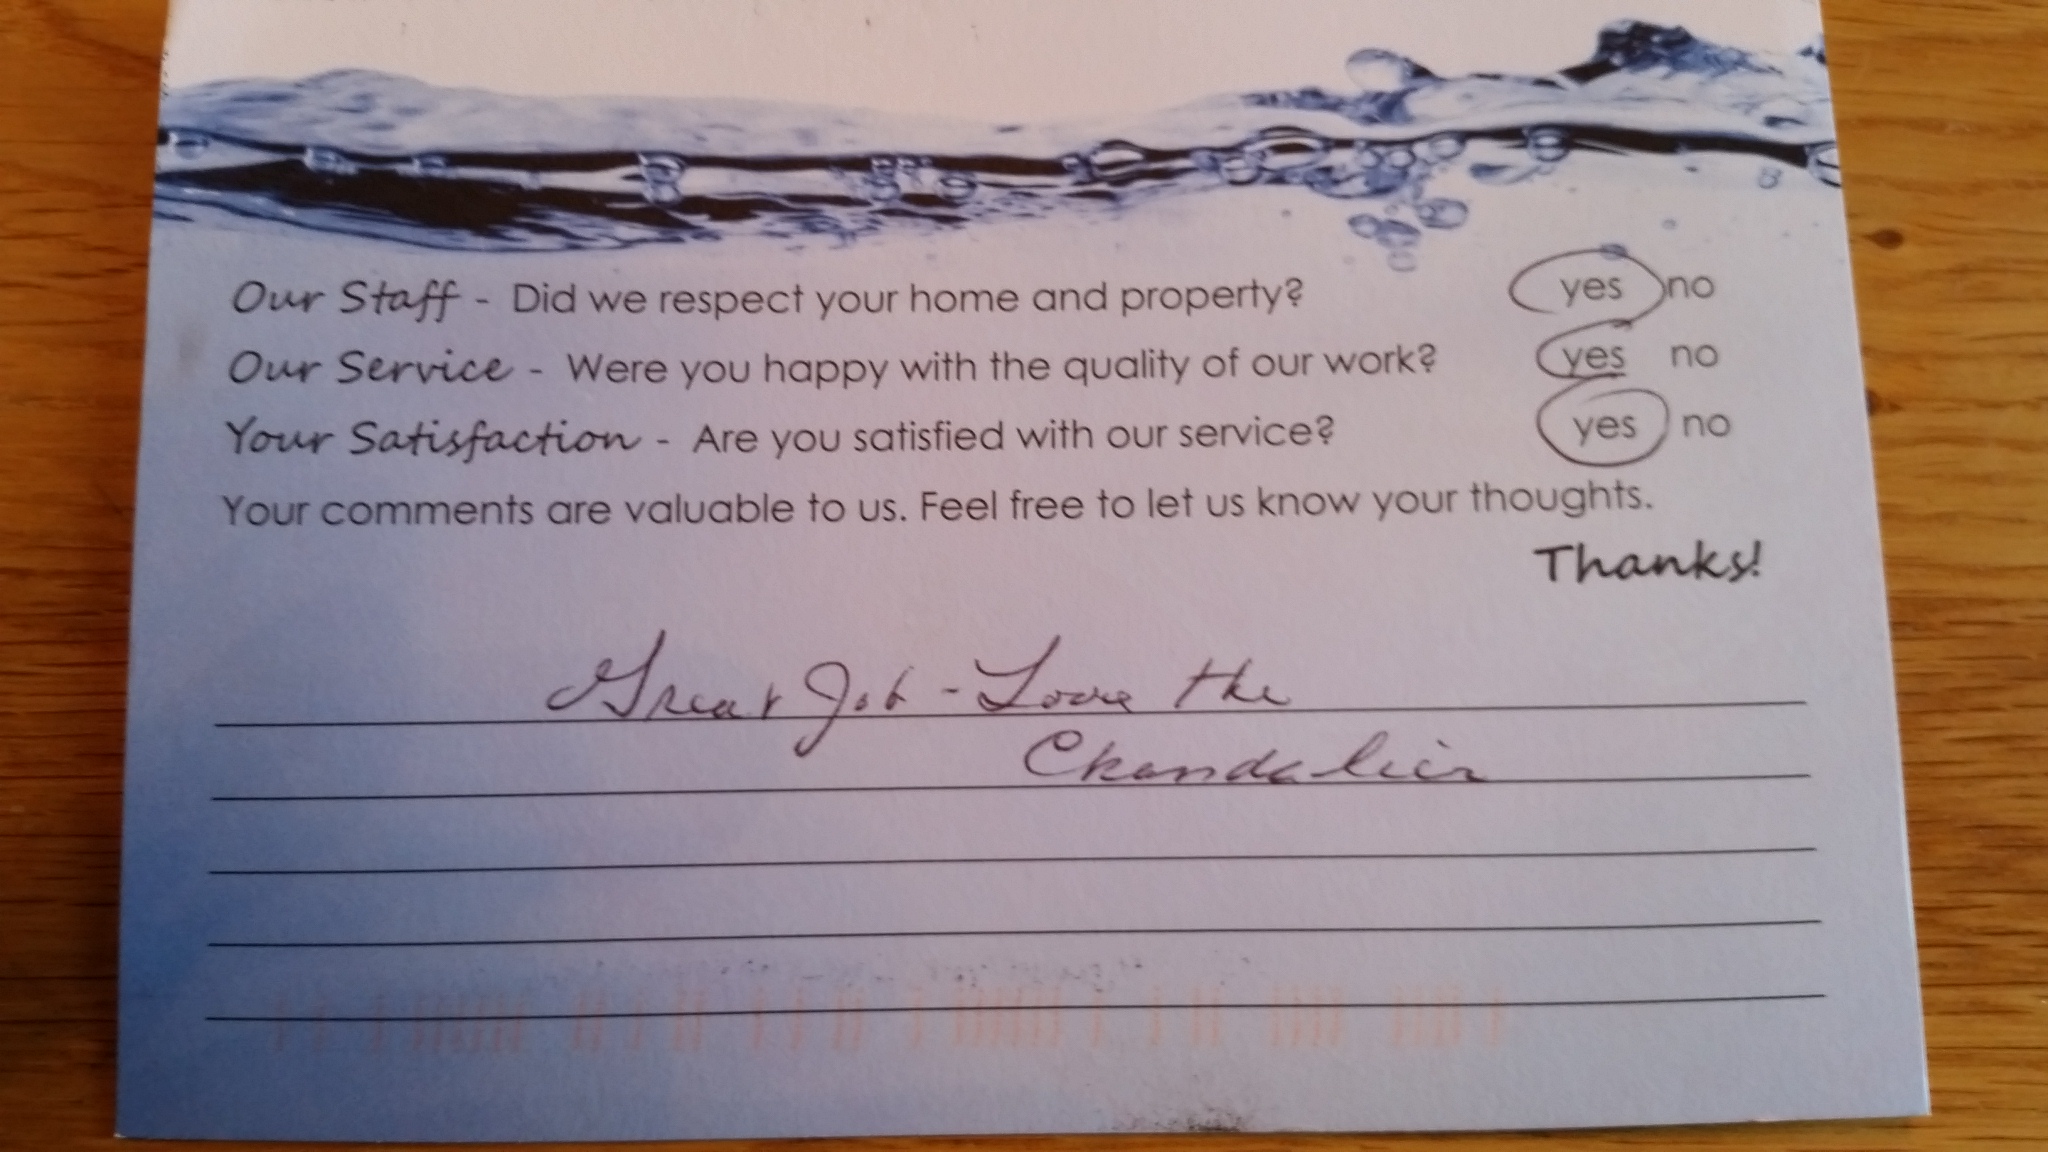 Our Staff - Did we respect your home and property? yes no
Our Service - Were you happy with the quality of our work? yes no
Your Satisfaction - Are you satisfied with our service? yes no
Your comments are valuable to us. Feel free to let us know your thoughts.
Thanks!
Great Job - Love the
Chandalier